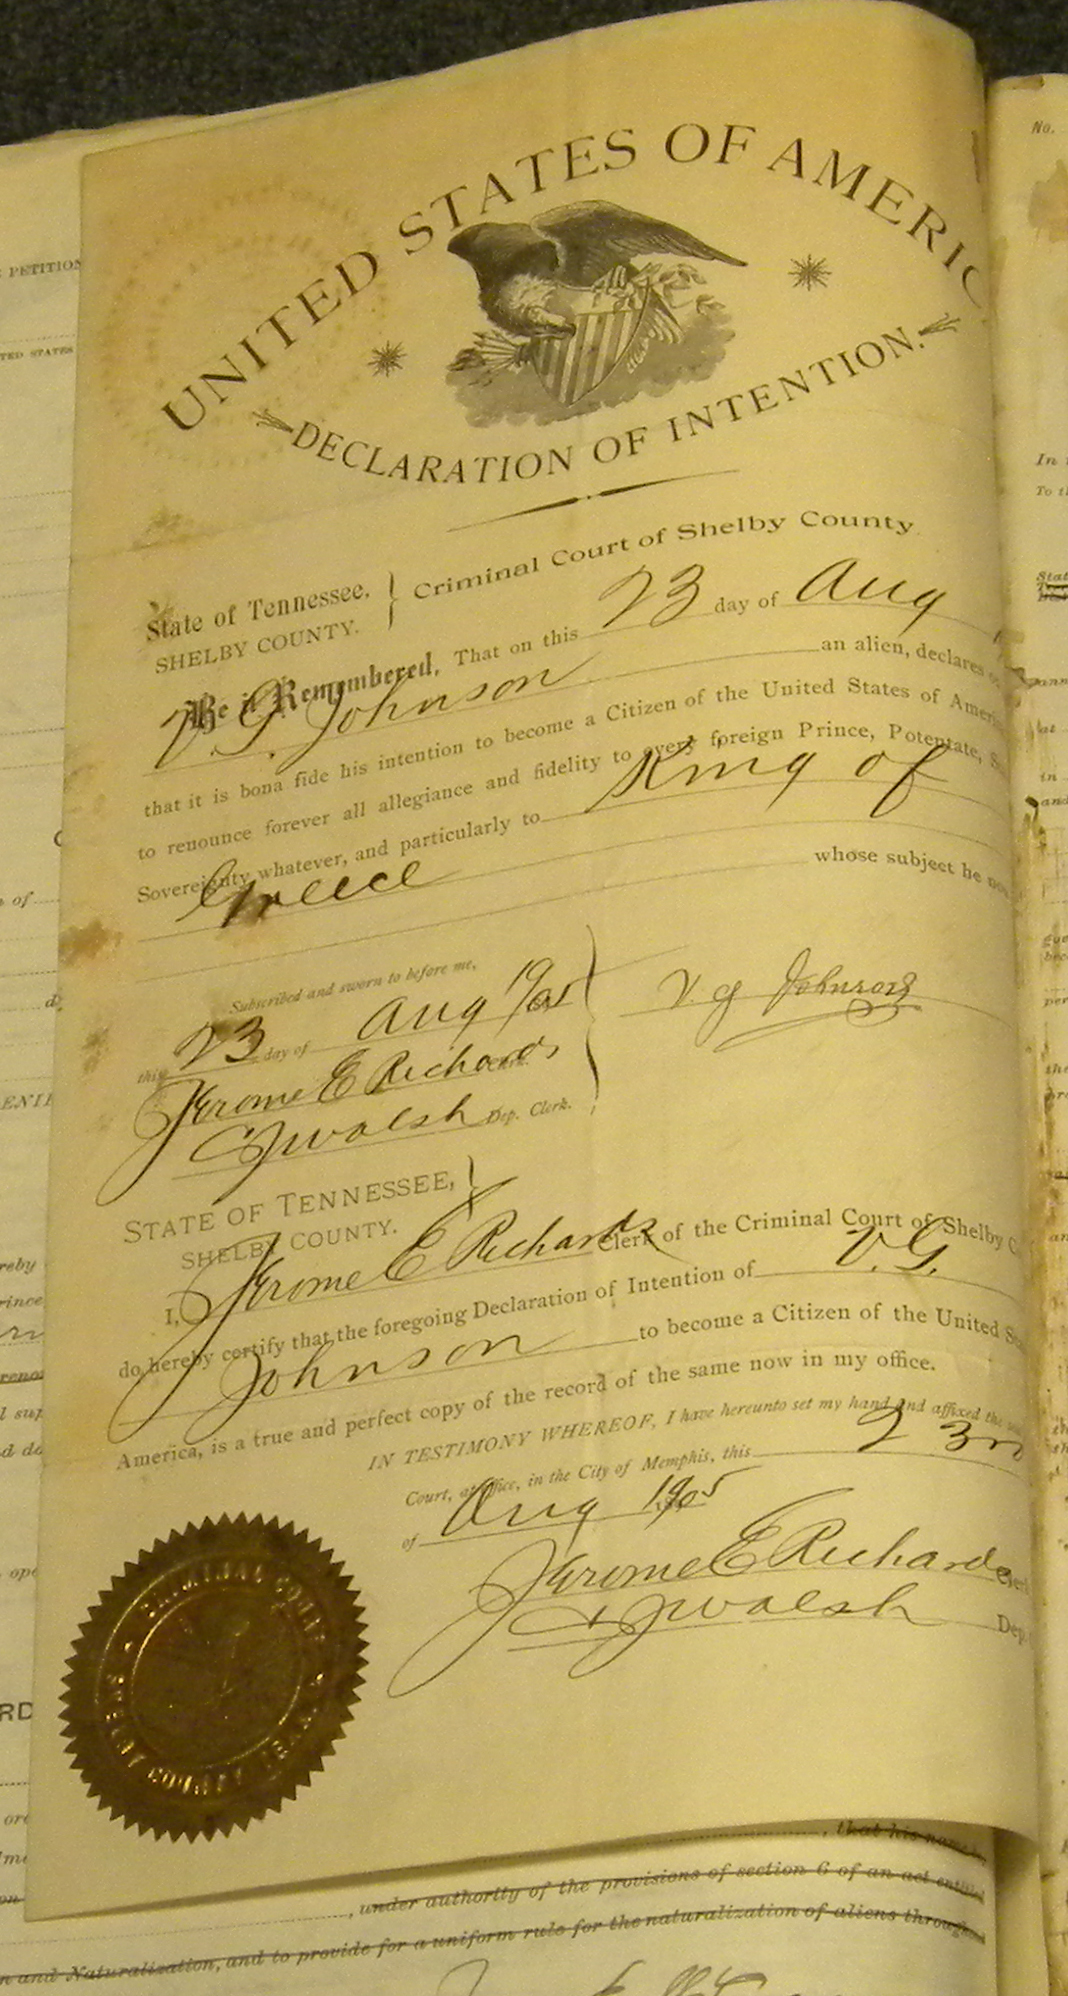 UNITED STATES OF AMERIC
DECLARATION OF INTENTION.
State of Tennessee, } Criminal Court of Shelby County
SHELBY COUNTY.
Be it Remembered, That on this 23 day of Aug
V. G. Johnson an alien, declares
that it is bona fide his intention to become a Citizen of the United States of Ameri
to renounce forever all allegiance and fidelity to every foreign Prince, Potentate,
Sovereignty whatever, and particularly to King of
Greece whose subject he no
Subscribed and sworn to before me,
this 23 day of Aug 1905
V G Johnson
Jerome E Richards Clerk.
C J Walsh Dep. Clerk.
STATE OF TENNESSEE, }
SHELBY COUNTY.
I, Jerome E Richards Clerk of the Criminal Court of Shelby C
do hereby certify that the foregoing Declaration of Intention of V. G.
Johnson to become a Citizen of the United
America, is a true and perfect copy of the record of the same now in my office.
IN TESTIMONY WHEREOF, I have hereunto set my hand and affixed the
Court, at office, in the City of Memphis, this 23
of Aug 1905
Jerome E Richards
C J Walsh Dep
CRIMINAL COURT
COUNTY
, that his name
, under authority of the provisions of section 6 of an act entitled
n and Naturalization, and to provide for a uniform rule for the naturalization of aliens through
PETITION
TED STATES
of
No.
In
To